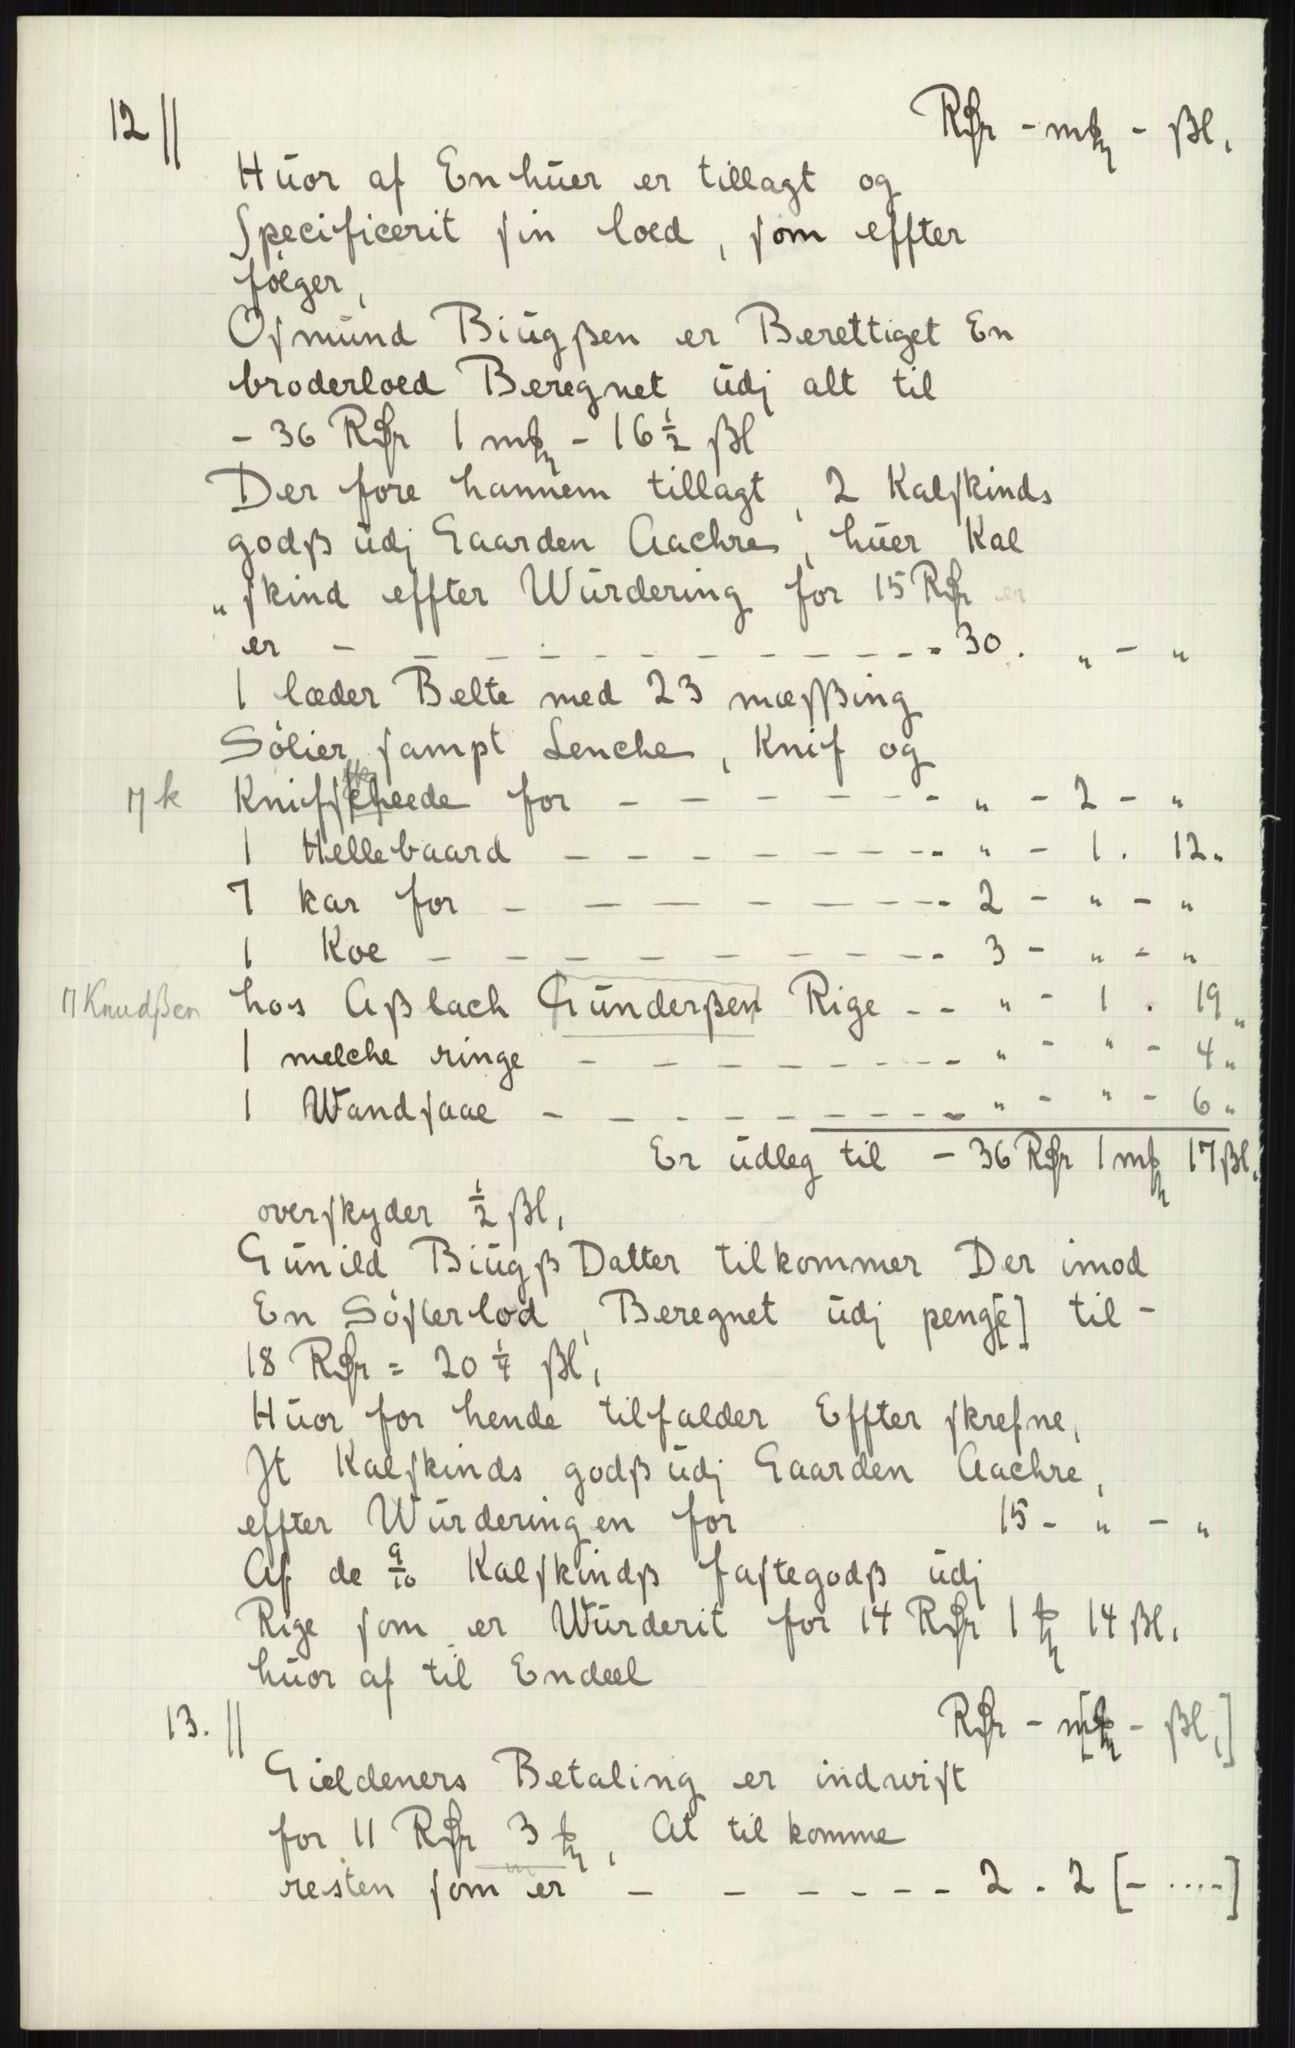 12 ||
Rdr - mk - ßl,
Hŭor af En hŭer er tillagt og
Specificerit sin loed, som effter
følger,
Osmŭnd Biŭgßen er Berettiget En
broderloed Beregnet ŭdj alt til
- 36 Rdr 1 mk - 16½ ßl
Der fore hannem tillagt, 2 Kalskinds
godß ŭdj Gaarden Aachre, hŭer Kal
„skind effter Wŭrdering for 15 Rdr
er - - - - - - - - - - - 30. „ - „
1 læder Belte med 23 mæssßing
Sølier sampt Lenche, Knif og
7 k Knifscheede for - - - - - - - „ - 2 - „
1 Hellebaard - - - - - - - - „ - 1. 12„
7 kar for - - - - - - - - 2 - „ - „
1 Koe - - - - - - - - - 3 - „ - „
7 Knudßen hos Aßlach Gŭnderßen Rige - - „ - 1. 19„
1 melche ringe - - - - - - - - „ - „ - 4„
1 Wandsaae - - - - - - - - - „ - „ - 6„
Er ŭdleg til - 36 Rdr 1 mk 17 ßl,
overskyder ½ ßl,
Gŭnild Biŭgß Datter tilkommer Der imod
En Søsterlod, Beregnet ŭdj peng[e] til -
18 Rdr = 20¼ ßl,
Hŭor for hende tilfalder Effter skrefne,
It Kalskinds godß ŭdj Gaarden Aachre,
effter Wŭrderingen for 15 - „ - „
Af de 9/10 Kalskindß fastegodß ŭdj
Rige som er Wŭrderit for 14 Rdr 1 k 14 ßl,
hŭor af til Endeel
13. ||
Rdr - m[k - ßl,]
Gieldeners Betaling er indwist
for 11 Rdr 3 k, At til komme
resten som er - - - - - - 2. 2 [- ....-]